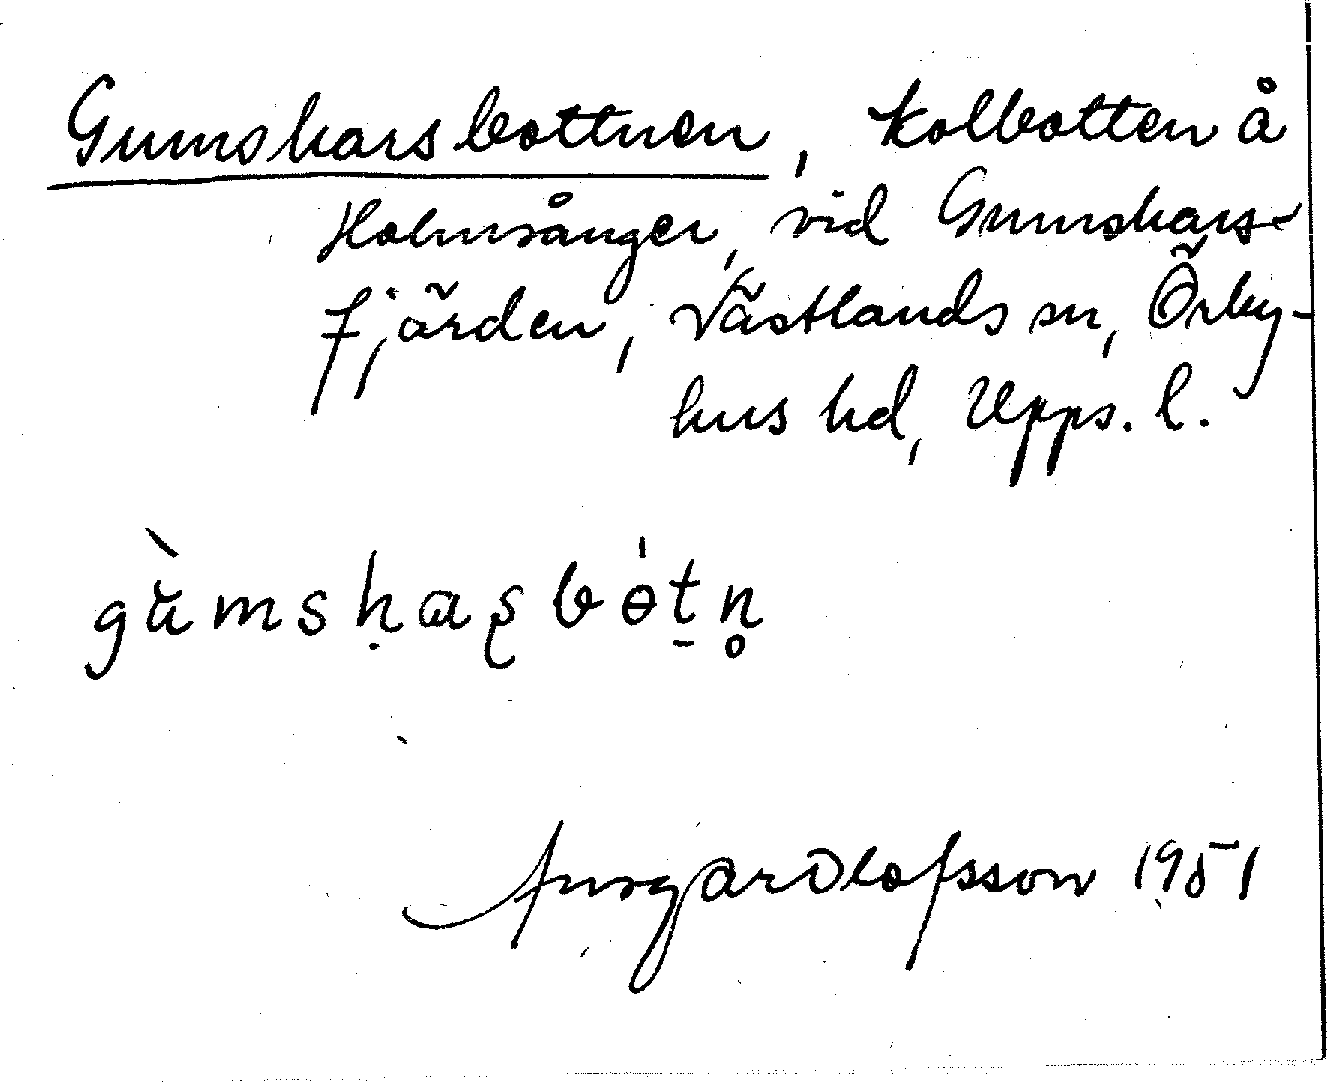 Gumsharsbottnen, kolbotten å
Holmsånger, vid Gumshars-
fjärden, Västlands sn, Örby-
hus hd, Upps. l.
gu̇̀msḥaʂbɵ́t̠n̥
Ansgar Olofsson 1951